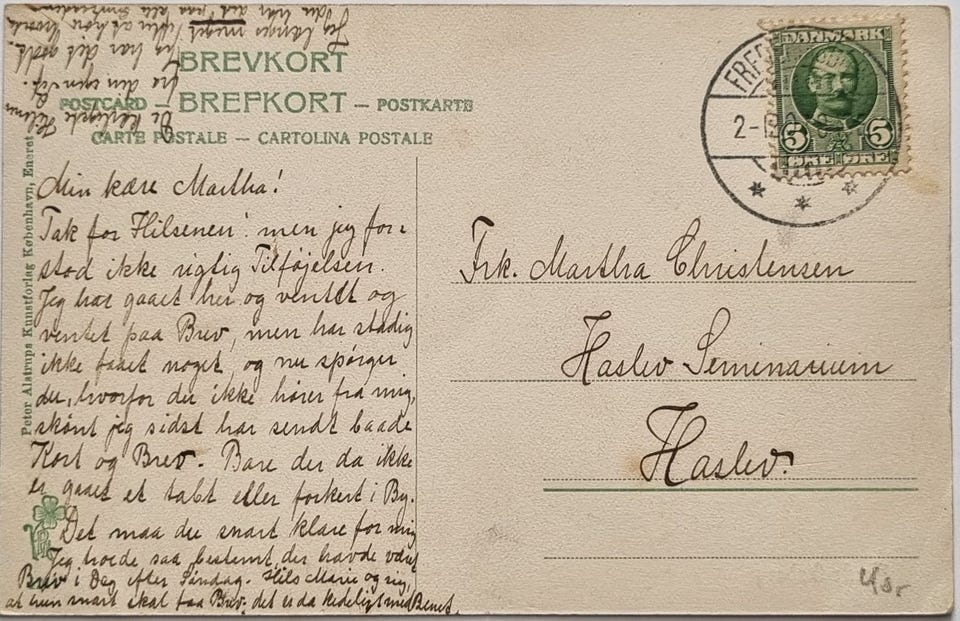 BREVKORT
POSTCARD – BREFKORT – POSTKARTE
CARTE POSTALE – CARTOLINA POSTALE
Peter Alstrups Kunstforlag København, Eneret
DANMARK
5 5
ØRE ØRE
FRE
2-
Min kære Martha!
Tak for Hilsenen! men jeg for-
stod ikke rigtig Tilføjelsen.
Jeg har gaaet her og ventet og
ventet paa Brev, men har stadig
ikke faaet noget, og nu spørger
du, hvorfor du ikke hører fra mig,
skønt jeg sidst har sendt baade
Kort og Brev. Bare der da ikke
er gaaet et tabt eller forkert i By.
Det maa du snart klare for mig
Jeg troede saa bestemt, der havde været
Brev i Dag efter Søndag. Hils Marie og sig,
at hun snart skal faa Brev. det er da kedeligt med Benet.
Jeg længes meget efter at høre hvordan
du har det paa alle
Jeg har det godt.
De kærligste Hilsner
fra din egen
Frk. Martha Christensen
Haslev Seminarium
Haslev.